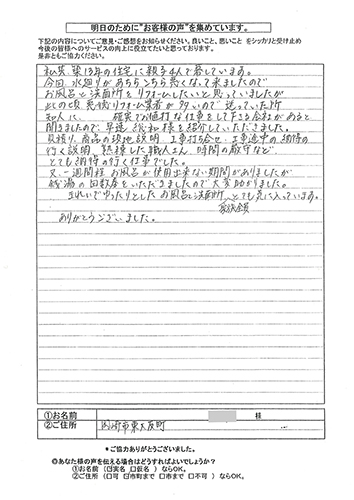 明日のために"お客様の声"を集めています。
下記の内容についてご意見・ご感想をお知らせください。良いこと、悪いこと をシッカリと受け止め
今後の皆様へのサービスの向上に役立てたいと思っております。
是非ともご協力ください。
私共、築13年の住宅に親子4人で暮しています。
今回、水廻りがあちらこちら悪くなって来ましたので
お風呂と洗面所をリフォームしたいと思っていましたが
此の頃 悪徳リフォーム業者が多いので 迷っていた所
知人に、確実でお値打な仕事をして下さる会社があると
聞きましたので、早速 様を紹介していただきました。
見積り、商品の現地説明、工事打ち合せ、工事途中の納得の
行く説明、熟練した職人さん、時間の厳守など、
とても納得の行く仕事でした。
又、一週間程 お風呂が使用出来ない期間がありましたが
銭湯の回数券をいただきましたので大変助かりました。
きれいでゆったりとしたお風呂と洗面所、とても気に入っています。
家族全員
ありがとうございました。
①お名前
様
②ご住所
市東大友町
*ご協力ありがとうございました。
◎あなた様の声を伝える場合はどうすればよいでしょうか?
①お名前 (☑実名 ☐仮名 ) ならOK。
②ご住所 (☐可 ☑市町まで ☐市まで ☐不可 ) ならOK。